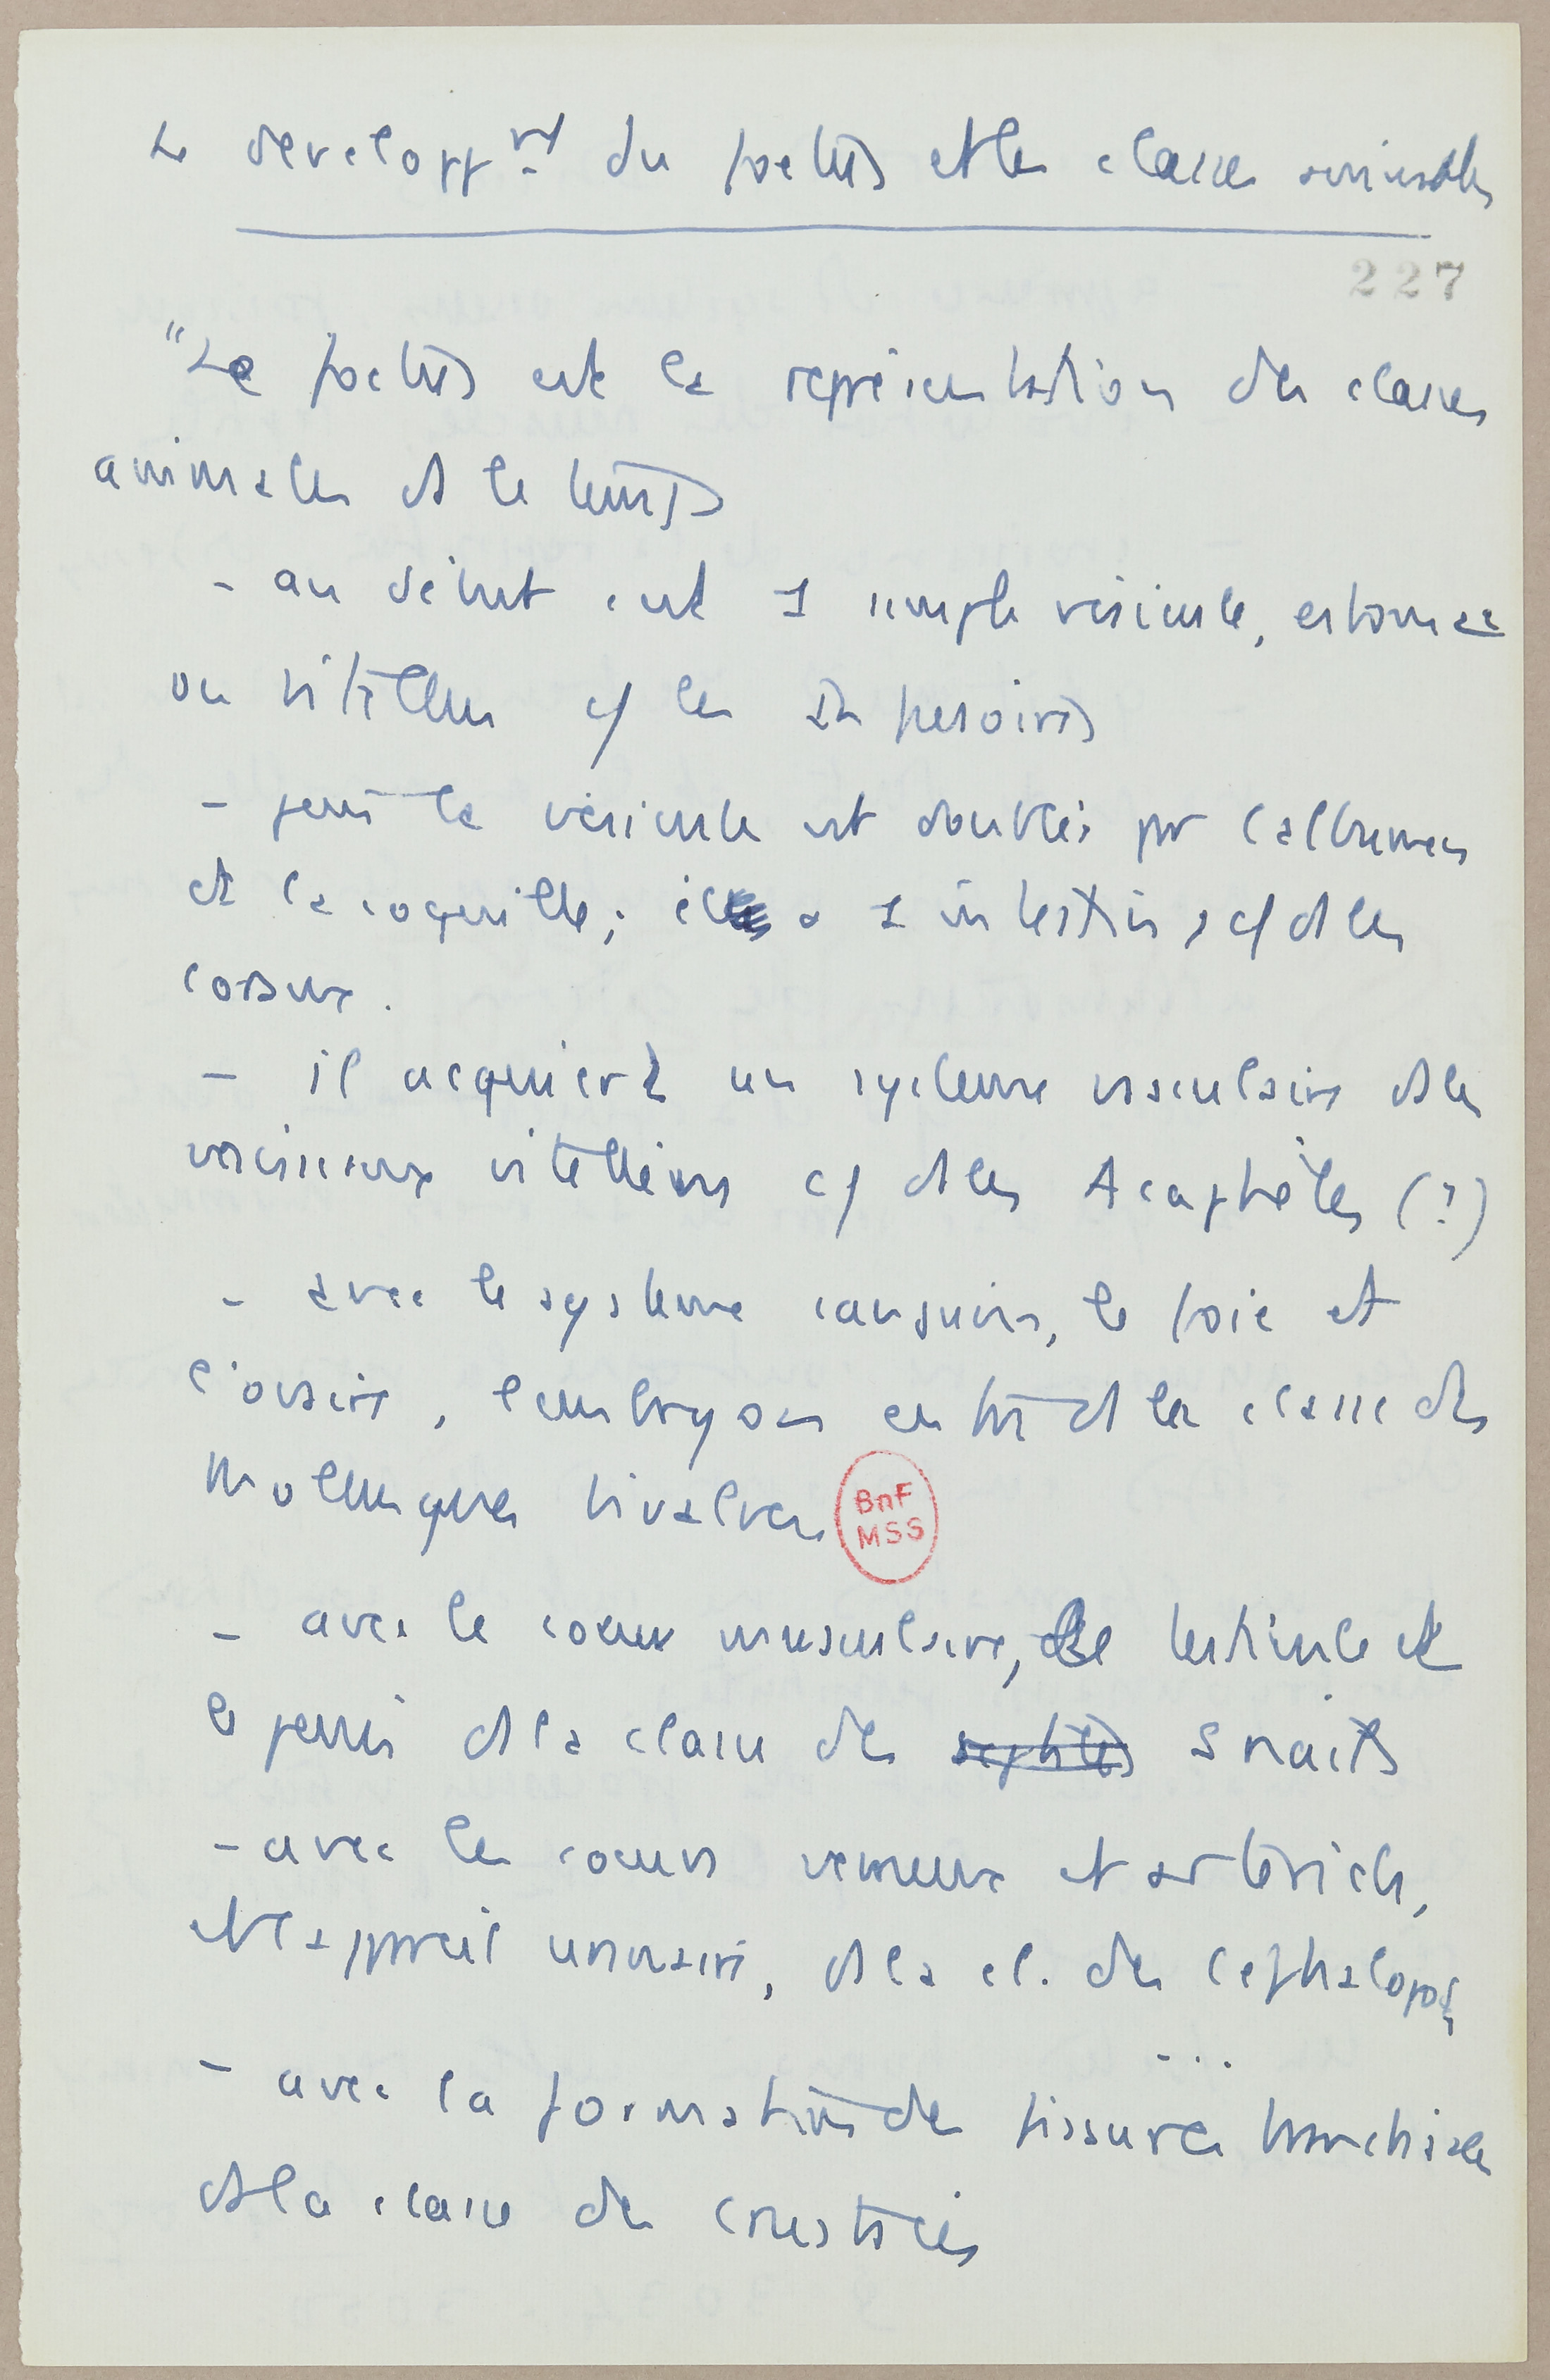 Le developpmt du foetus et les classes animales
227
"Le foetus est la représentation des classes
animales ds le temps
- au début c'est 1 simple vésicule, estomac
ou vitellus cf les Infusoires
- puis la vésicule est doublée par l'albumen
et la coquille; il a 1 intestin, cf ds les
coraux.
- il acquiert un systeme vasculaire ds les
vaisseaux vitellins cf ds les Acaphèles (?)
- avec le systeme sanguin, le foie et
l'ovaire, l'embryon entre ds la classe des
mollusques bivalves
BnF
MSS
- avec le coeur musculaire, le testicule et
le penis ds la classe des snails
- avec les coeurs veineux et artériels,
et l'appareil urinaire, ds la cl. des Cephalopodes
...
- avec la formation des fissures branchiales
ds la classe des crustacés